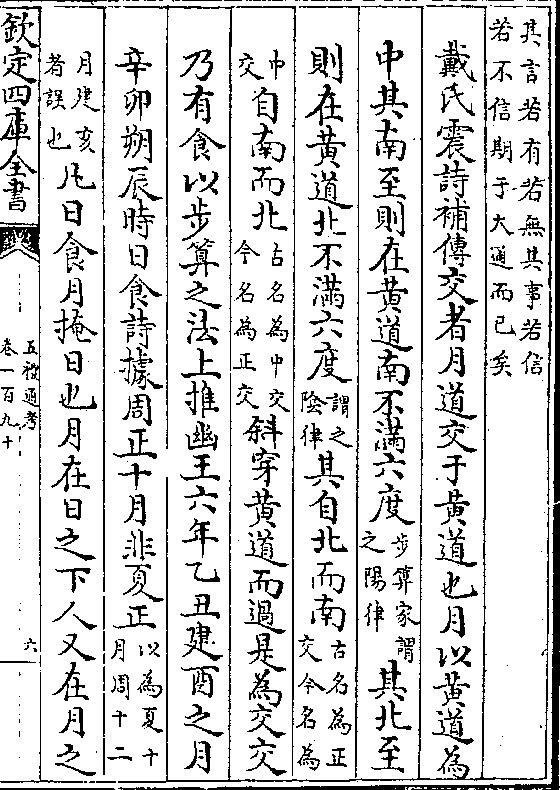 其言若有若無其事若信
若不信期于大通而已矣
戴氏震詩補傳交者月道交于黄道也月以黄道為
中其南至則在黄道南不滿六度步算家謂之陽律其北至
則在黄道北不滿六度謂之陰律其自北而南古名為正交今名為
中交自南而北古名為中交今名為正交斜穿黄道而過是為交交
乃有食以步算之法上推幽王六年乙丑建酉之月
辛卯朔辰時日食詩據周正十月非夏正以為夏十月周十二
月建亥者誤也凡日食月掩日也月在日之下人又在月之
欽定四庫全書
五禮通考
卷一百九十
六